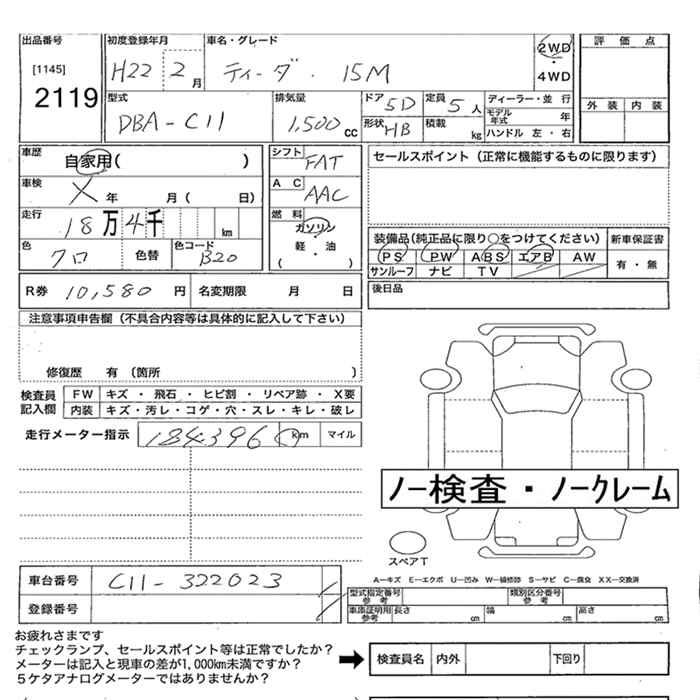 出品番号 初度登録年月 車名・グレード 評価点
[1145] H22 2月 ティーダ・15M 2WD・4WD
2119 外装 内装
型式 排気量 ドア 5D 定員 5人 ディーラー・並行
DBA-C11 1,500cc 形状 HB 積載 kg モデル年式 年
ハンドル 左・右
車歴 自家用( ) シフト FAT セールスポイント(正常に機能するものに限ります)
車検 X 年 月( 日) AC AAC
走行 18万4千 km 燃料 ガソリン・軽・油( )
色 クロ 色替 色コード B20
装備品(純正品に限り○をつけてください) 新車保証書
PS PW ABS エアB AW 有・無
サンルーフ ナビ TV
R券 10,580円 名変期限 月 日 後日品
注意事項申告欄(不具合内容等は具体的に記入して下さい)
修復歴 有(箇所 )
検査員記入欄 FW キズ・飛石・ヒビ割・リペア跡・X要
内装 キズ・汚レ・コゲ・穴・スレ・キレ・破レ
走行メーター指示 184396 km マイル
ノー検査・ノークレーム
スペアT
A―キズ E―エクボ U―凹み W―補修跡 S―サビ C―腐食 XX―交換済
車台番号 C11-322023 型式指定番号参考 類別区分番号参考
登録番号 車庫証明用参考 長さ cm 幅 cm 高さ cm
お疲れさまです
チェックランプ、セールスポイント等は正常でしたか?
メーターは記入と現車の差が1,000km未満ですか?
5ケタアナログメーターではありませんか?
検査員名 内外 下回り